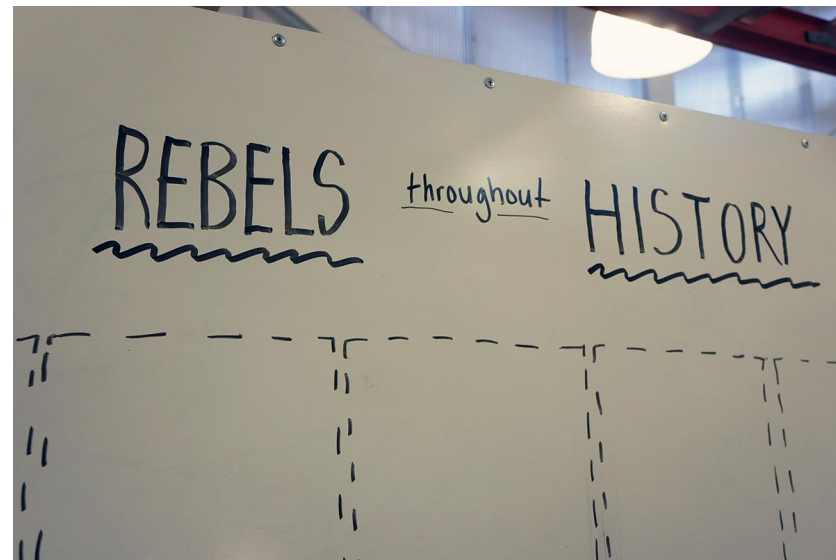 REBELS throughout HISTORY